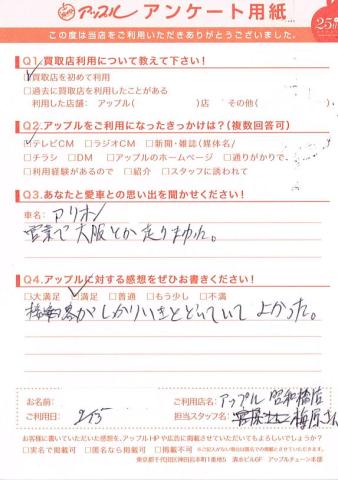 アップル アンケート用紙
25th
この度は当店をご利用いただきありがとうございました。
Q1.買取店利用について教えて下さい!
□買取店を初めて利用
□過去に買取店を利用したことがある
利用した店舗: アップル( )店 その他( )
Q2.アップルをご利用になったきっかけは?(複数回答可)
□テレビCM □ラジオCM □新聞・雑誌(媒体名/
□チラシ □DM □アップルのホームページ □通りがかりで、
□利用経験があるので □紹介 □スタッフに誘われて
Q3.あなたと愛車との思い出を聞かせください!
車名: アリオン
営業で大阪とか走りまわった。
Q4.アップルに対する感想をぜひお書きください!
□大満足 □満足 □普通 □もう少し □不満
がしっかりいきとどいていてよかった。
お名前:
ご利用店名: アップル 昭和橋店
ご利用日: 2/5
担当スタッフ名: 梅原さん
お客様に書いていただいた感想を、アップルHPや広告に掲載させていただいてもよろしいでしょうか?
□実名で掲載可 □匿名なら掲載可 □掲載不可
東京都千代田区神田岩本町1番地5 清水ビル6F アップルチェーン本部